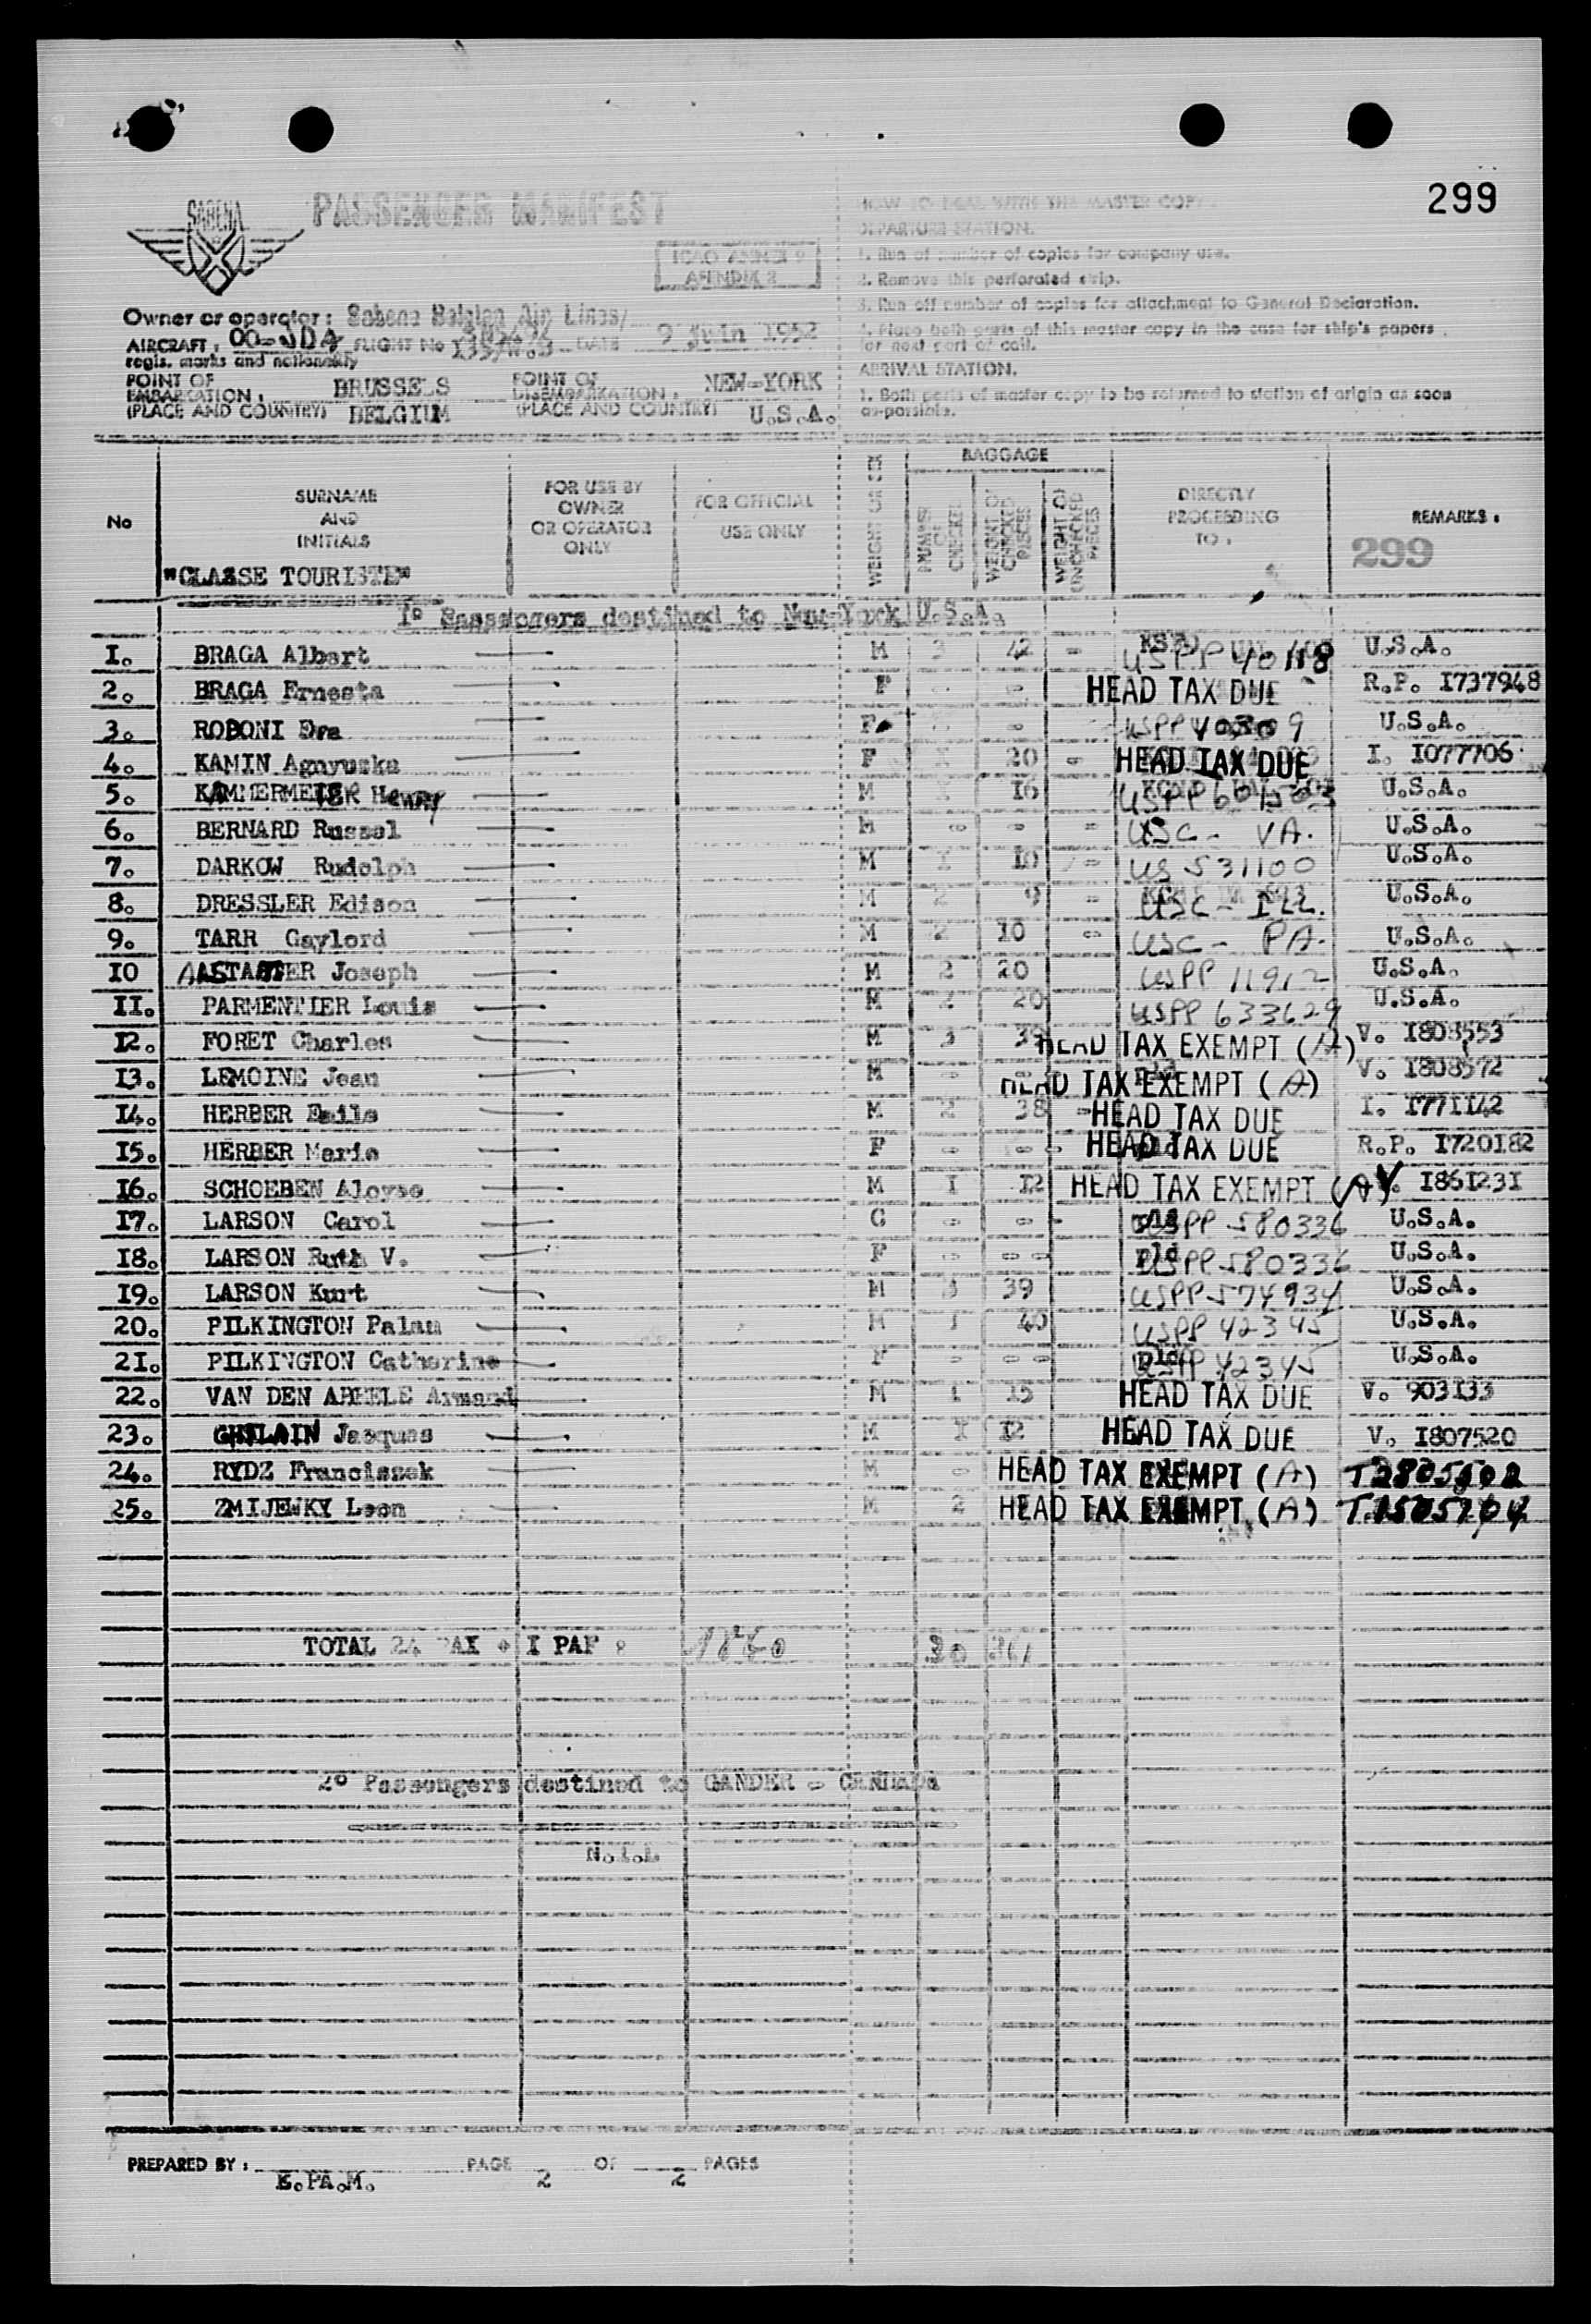 299
SABENA
PASSENGER MANIFEST
ICAO ANNEX 9
APENDIX 2
HOW TO DEAL WITH THE MASTER COPY.
DEPARTURE STATION.
1. Run of number of copies for company use.
2. Remove this perforated strip.
3. Run off number of copies for attachment to General Declaration.
4. Place both parts of this master copy in the case for ship's papers
for next port of call.
ARRIVAL STATION.
1. Both parts of master copy to be returned to station of origin as soon
as-possible.
Owner or operator: Sabena Belgian Air Lines/
AIRCRAFT: OO-SDA FLIGHT No DATE 9 Juin 1952
regis. marks and nationality
POINT OF EMBARCATION, BRUSSELS POINT OF DISEMBARKATION, NEW-YORK
(PLACE AND COUNTRY) BELGIUM (PLACE AND COUNTRY) U.S.A.
No SURNAME AND INITIALS FOR USE BY OWNER OR OPERATOR ONLY FOR OFFICIAL USE ONLY BAGGAGE NUMBER OF CHECKED WEIGHT OF CHECKED PIECES WEIGHT OF UNCHECKED PIECES DIRECTLY PROCEEDING TO: REMARKS:
299
"CLASSE TOURISTE"
I° Passengers destined to New-York U.S.A.
I. BRAGA Albert M 3 42 - USPP 40118 U.S.A.
2. BRAGA Ernesta F - - HEAD TAX DUE R.P. I737948
3. ROBONI Eva F - USPP 40309 U.S.A.
4. KAMIN Agnyuska F I 20 - HEAD TAX DUE I. I077706
5. KAMMERMEIER Henry M I I6 USPP 601503 U.S.A.
6. BERNARD Russel M - - - USC - VA. U.S.A.
7. DARKOW Rudolph M I I0 - US 531100 U.S.A.
8. DRESSLER Edison M 2 9 - USC - ILL. U.S.A.
9. TARR Gaylord M 2 I0 - USC - PA. U.S.A.
I0 Joseph M 2 20 USPP 11912 U.S.A.
II. PARMENTIER Louis M 2 20 USPP 633629 U.S.A.
I2. FORET Charles M 3 HEAD TAX EXEMPT (A) V. I808553
I3. LEMOINE Jean M - - HEAD TAX EXEMPT (A) V. I808572
I4. HERBER Emile M 2 38 - HEAD TAX DUE I. I771142
I5. HERBER Marie F - - - HEAD TAX DUE R.P. I720I82
I6. SCHOEBEN Aloyse M I I2 HEAD TAX EXEMPT (A) V. I86I23I
I7. LARSON Carol C - - - USPP 580336 U.S.A.
I8. LARSON Ruth V. F - - - USPP 580336 U.S.A.
I9. LARSON Kurt M 3 39 USPP 574934 U.S.A.
20. PILKINGTON Palam M 40 USPP 42345 U.S.A.
2I. PILKINGTON Catherine F - - - USPP 42345 U.S.A.
22. VAN DEN ABEELE Armand M I I5 HEAD TAX DUE V. 903I33
23. GHILAIN Jacques M I I2 HEAD TAX DUE V. I807520
24. RYDZ Franciszek M - HEAD TAX EXEMPT (A)
25. ZMIJEWKY Leon M 2 HEAD TAX EXEMPT (A)
TOTAL 24 PAX + I PAF : 30 361
2° Passengers destined to GANDER - CANADA
N.I.L
PREPARED BY: E.PA.M. PAGE 2 OF 2 PAGES